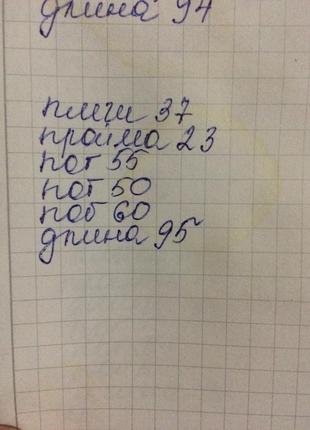 длина 94
плеги 37
пройма 23
пог 55
пот 50
поб 60
длина 95